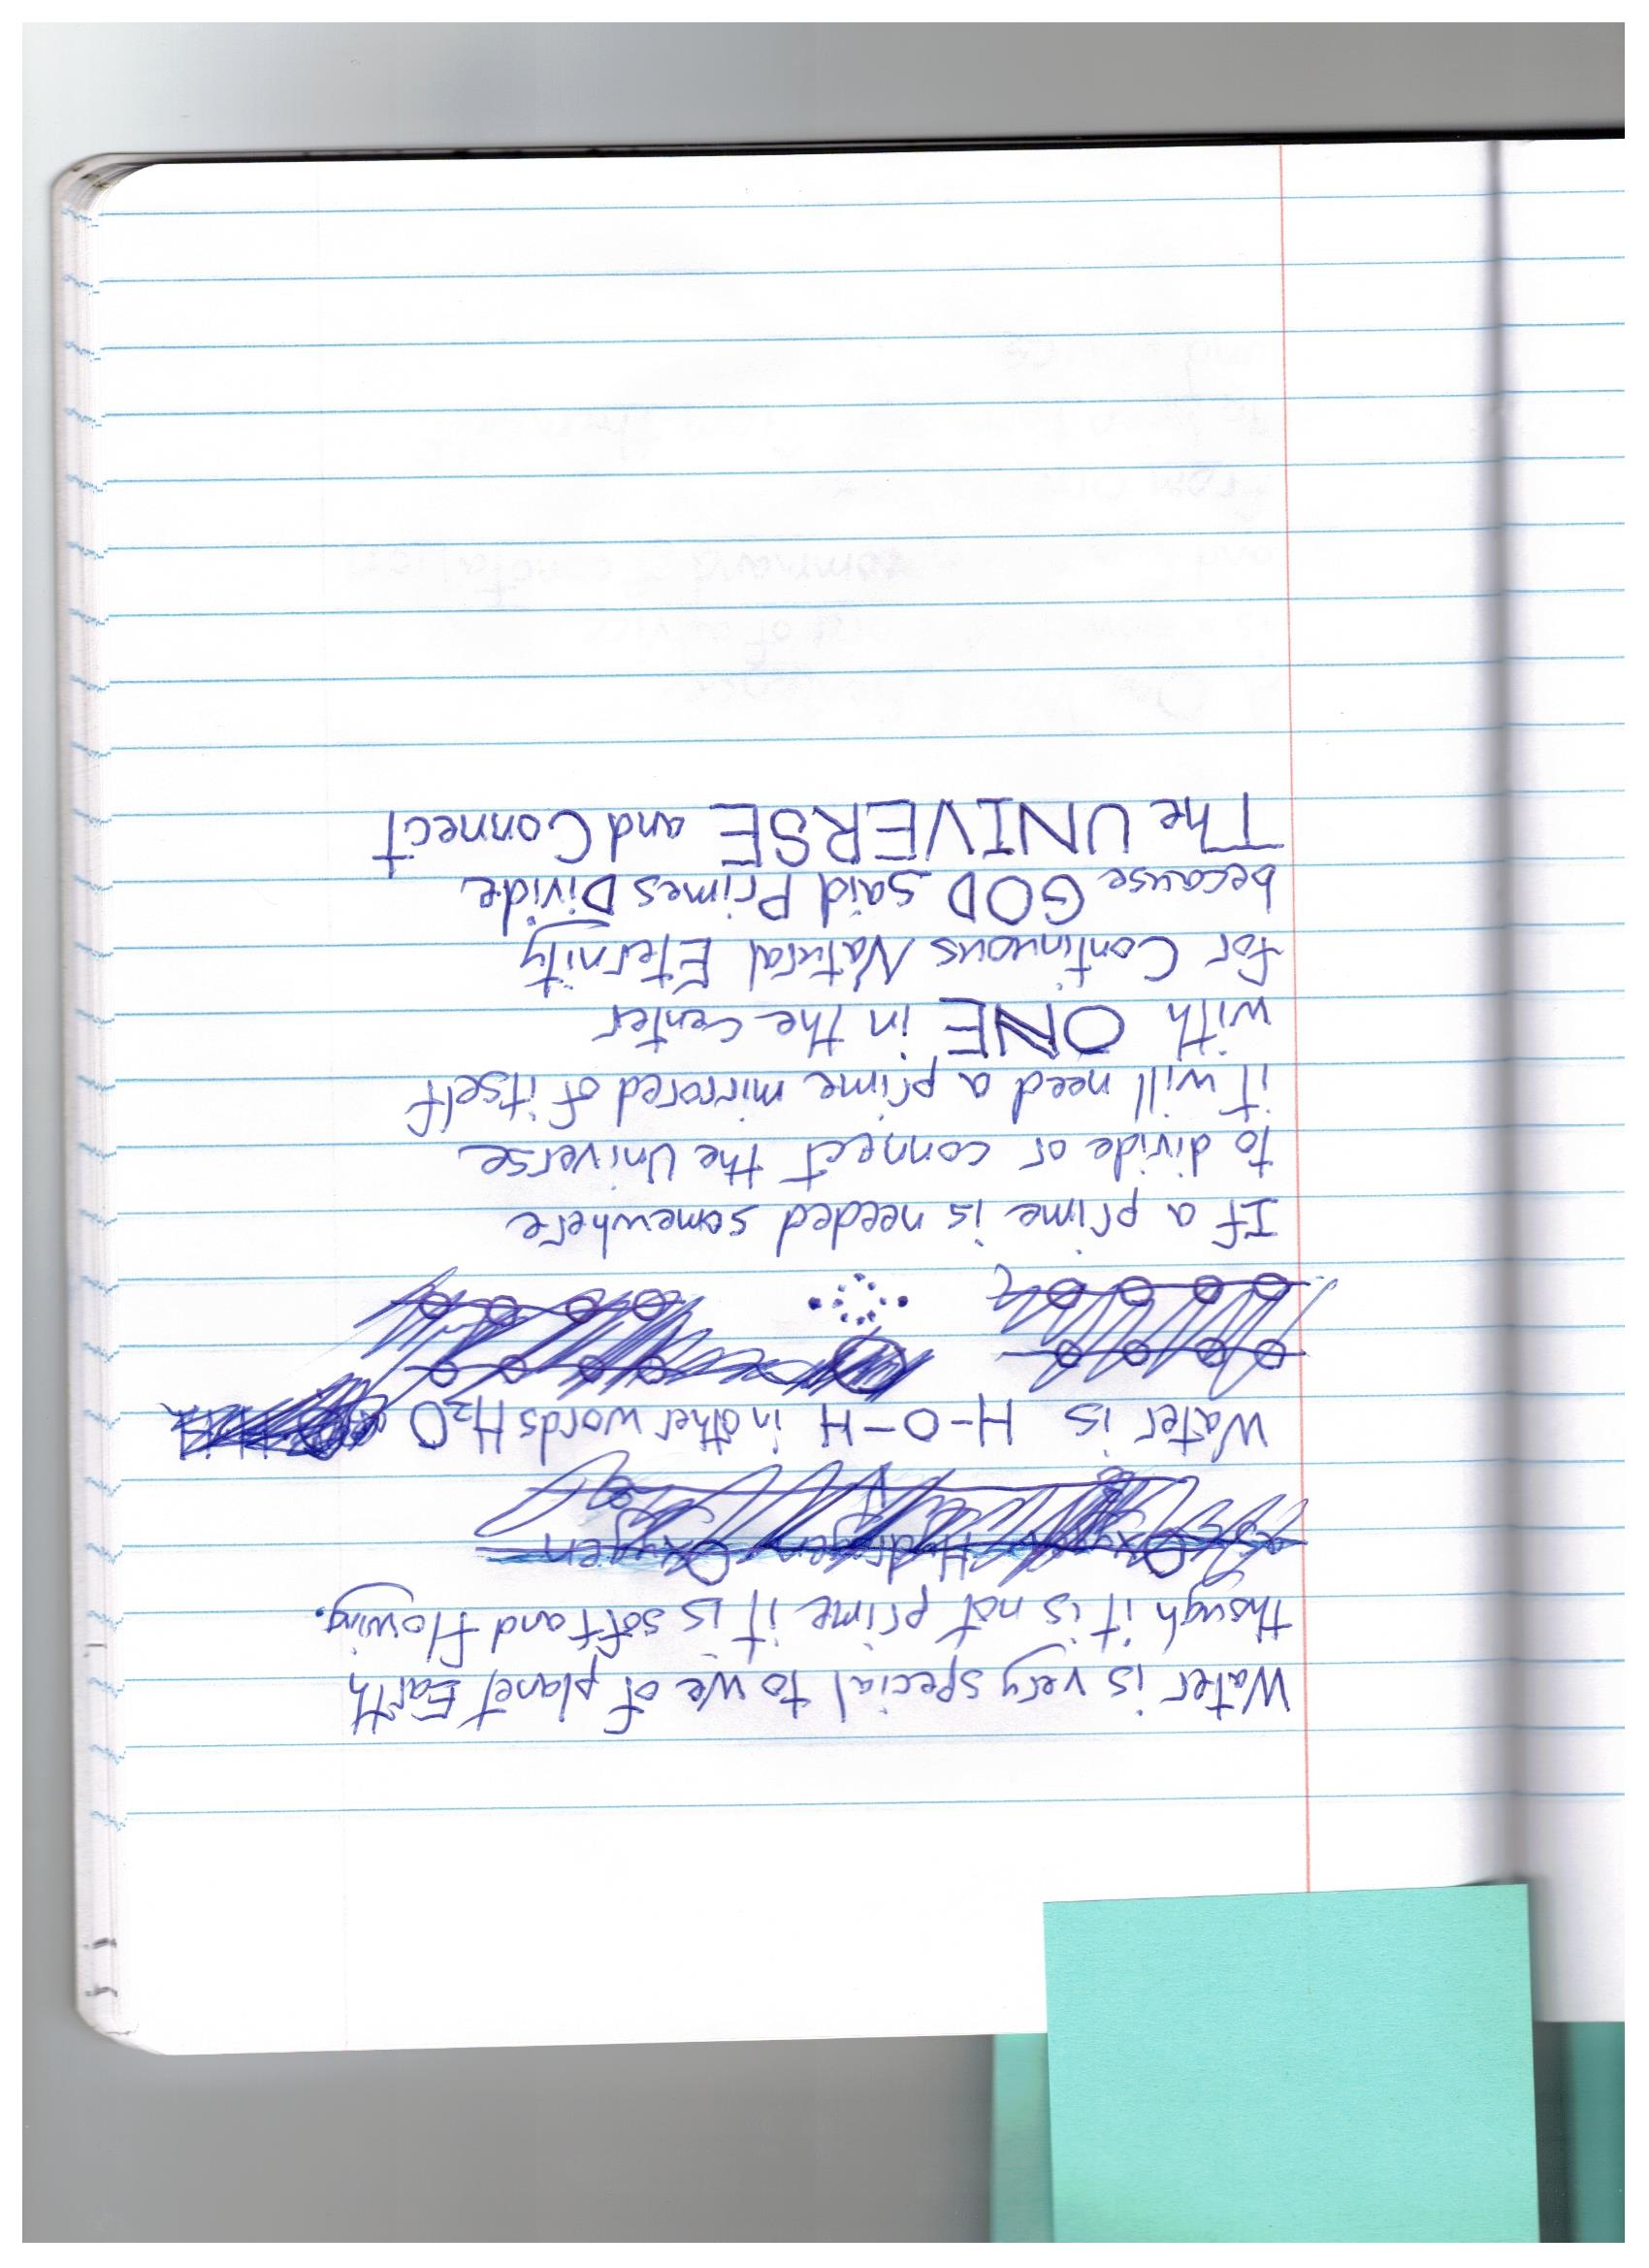 Water is very special to we of planet Earth
though it is not prime it is soft and flowing.
Oxygen Hydrogen Oxygen
Water is H-O-H in other words H₂O
If a prime is needed somewhere
to divide or connect the Universe
it will need a prime mirrored of itself
with ONE in the center
for Continuous Natural Eternity
because GOD said Primes Divide
The UNIVERSE and Connect